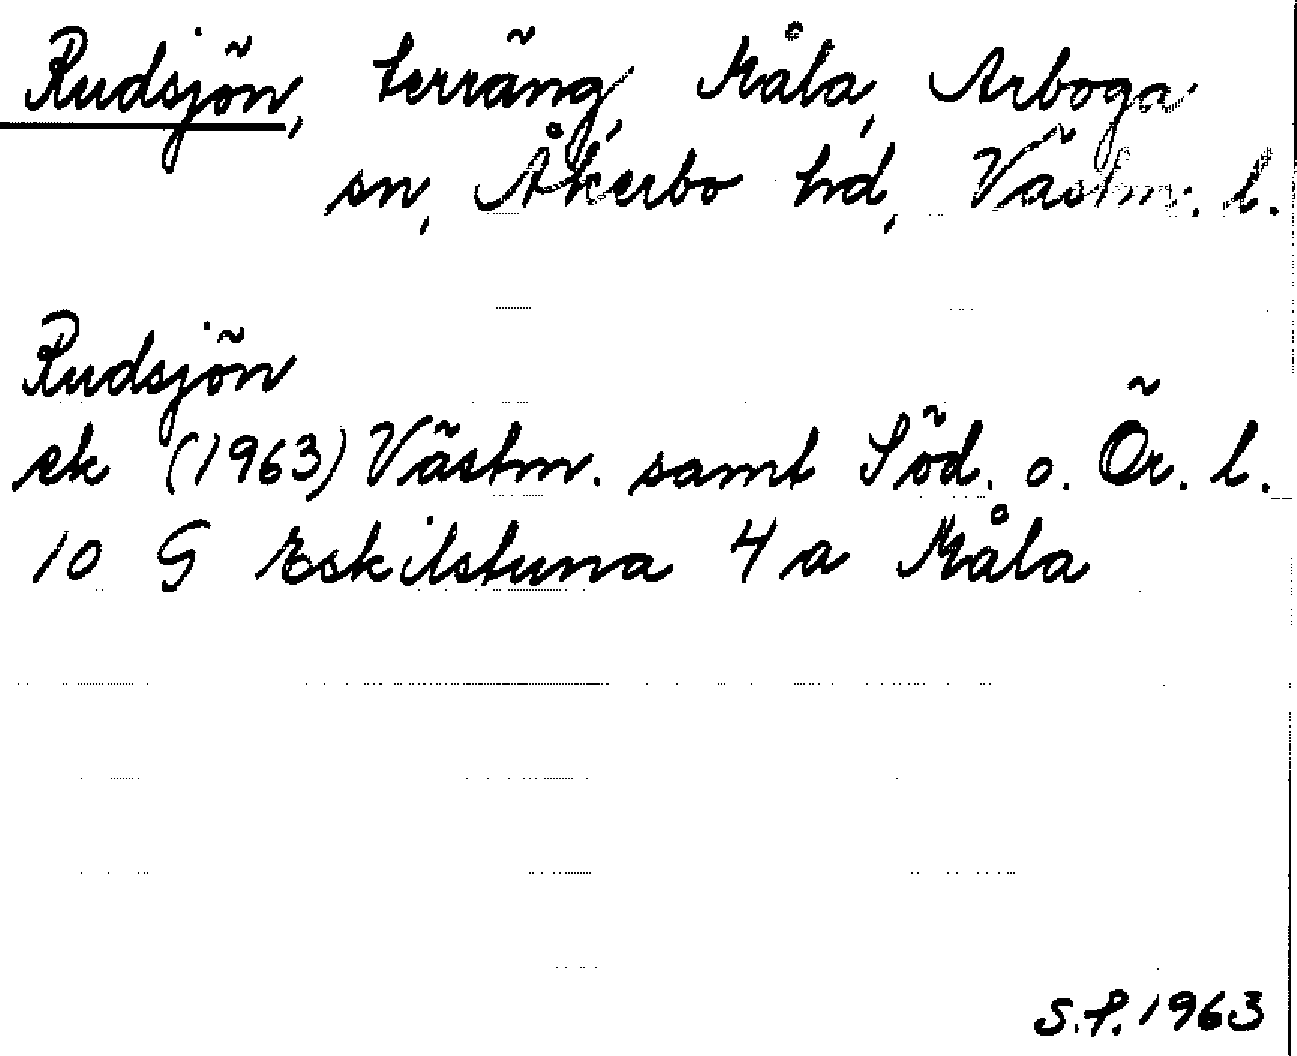 Rudsjön, terräng, Måla, Arboga
sn, Åkerbo hd, Västm. l.
Rudsjön
ek (1963) Västm. samt Söd. o. Ör. l.
10 G Eskilstuna 4 a Måla
S.P. 1963